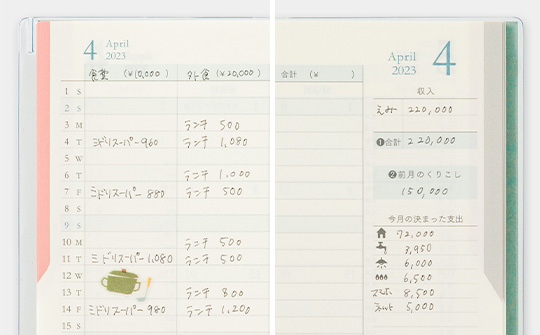 4 April 2023
食費 (¥10,000) 外食 (¥20,000) 合計 (¥ )
1 S
2 S
3 M ランチ 500
4 T ミドリスーパー 960 ランチ 1,080
5 W
6 T ランチ 1,000
7 F ミドリスーパー 880 ランチ 500
8 S
9 S
10 M ランチ 500
11 T ミドリスーパー 1,080 ランチ 500
12 W
13 T ランチ 800
14 F ミドリスーパー 980 ランチ 1,200
15 S
April 2023 4
収入
えみ 220,000
❶合計 220,000
❷前月のくりこし
150,000
今月の決まった支出
72,000
3,950
6,000
6,500
スマホ 8,500
ネット 5,000